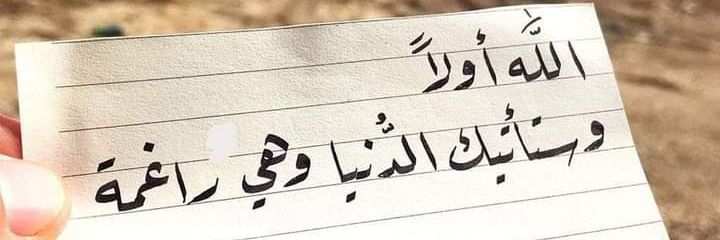 اللَّه أولاً
وستأتيك الدُّنيا وهي راغمة